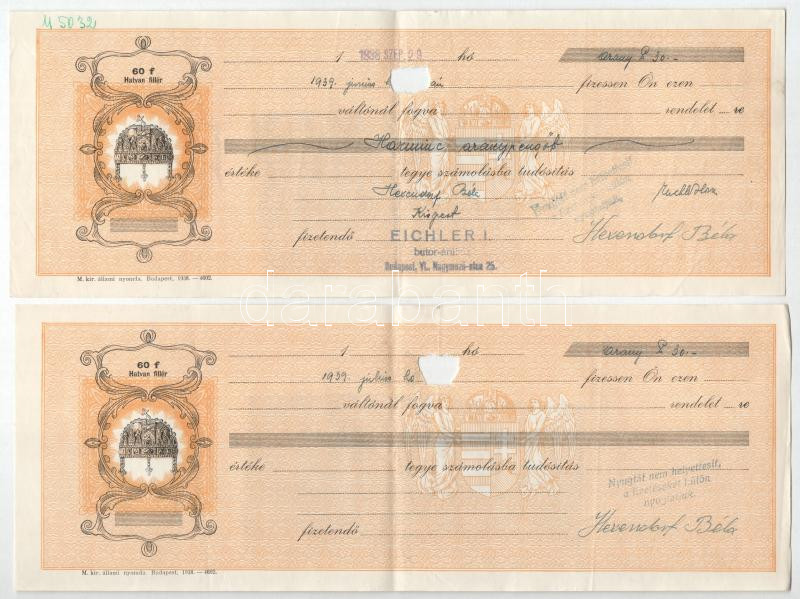 M 5032
60 f
Hatvan fillér
1 1938 SZEP. 2 hó arany P 30.-
1939. junius fizessen Ön ezen
váltónál fogva rendelet re
Harminc aranypengőt
értéke tegye számolásba tudósítás
Hexendorf Béla
Kispest
fizetendő Hexendorf Béla
EICHLER I.
butor-áruház
Budapest, VI., Nagymező-utca 25.
M. kir. állami nyomda. Budapest, 1938. — 4602.
darabanth
60 f
Hatvan fillér
1 hó arany P 30.-
1939. julius hó fizessen Ön ezen
váltónál fogva rendelet re
értéke tegye számolásba tudósítás
Nyugtát nem helyettesít,
a fizetéseket külön
nyugtatjuk.
fizetendő Hexendorf Béla
M. kir. állami nyomda. Budapest, 1938. — 4602.